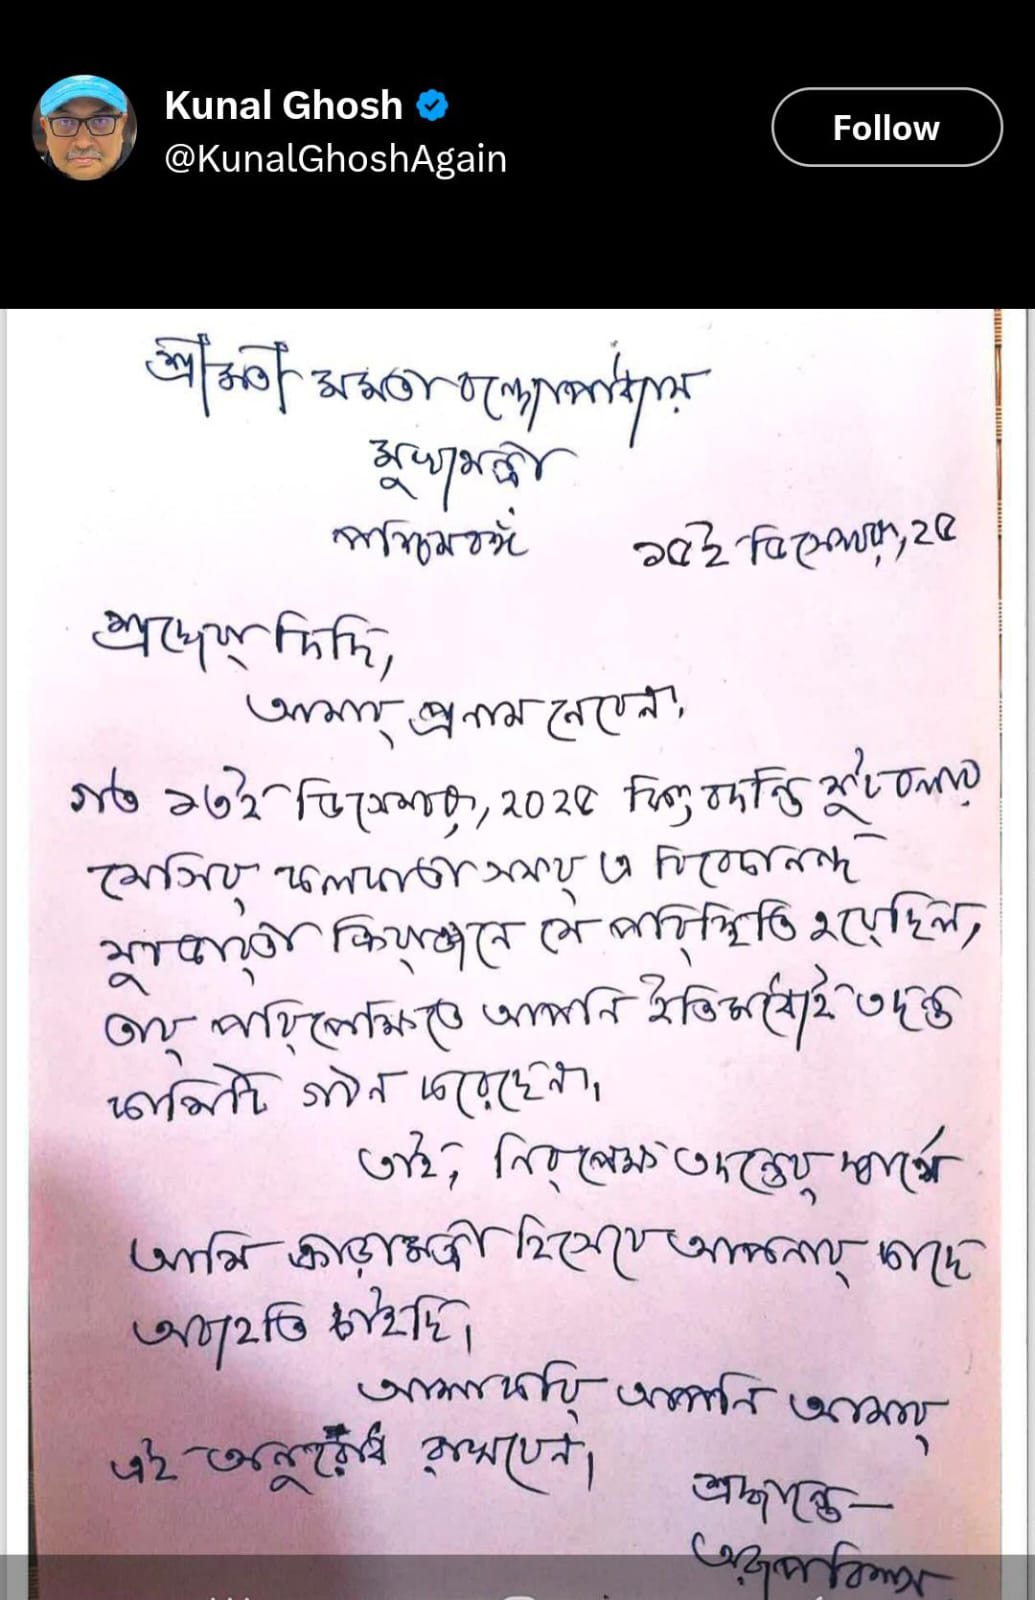 Kunal Ghosh
@KunalGhoshAgain
Follow
শ্রীমতী মমতা বন্দ্যোপাধ্যায়
মুখ্যমন্ত্রী
পশ্চিমবঙ্গ
১৫ই ডিসেম্বর, ২৫
শ্রদ্ধেয় দিদি,
আমার প্রনাম নেবেন।
গত ১৩ই ডিসেম্বর, ২০২৫ বিশ্ব বন্দিত ফুটবলার
মেসির কলকাতা সফর ও বিবেকানন্দ
যুবভারতী ক্রিয়াঙ্গনে যে পরিস্থিতি হয়েছিল,
তার পরিপ্রেক্ষিতে আপনি ইতিমধ্যেই তদন্ত
কমিটি গঠন করেছেন।
তাই, নিরপেক্ষ তদন্তের স্বার্থে
আমি ক্রীড়ামন্ত্রী হিসেবে আপনার কাছে
অব্যহতি চাইছি।
আশা করি আপনি আমার
এই অনুরোধ রাখবেন।
শ্রদ্ধান্তে—
অরূপ বিশ্বাস